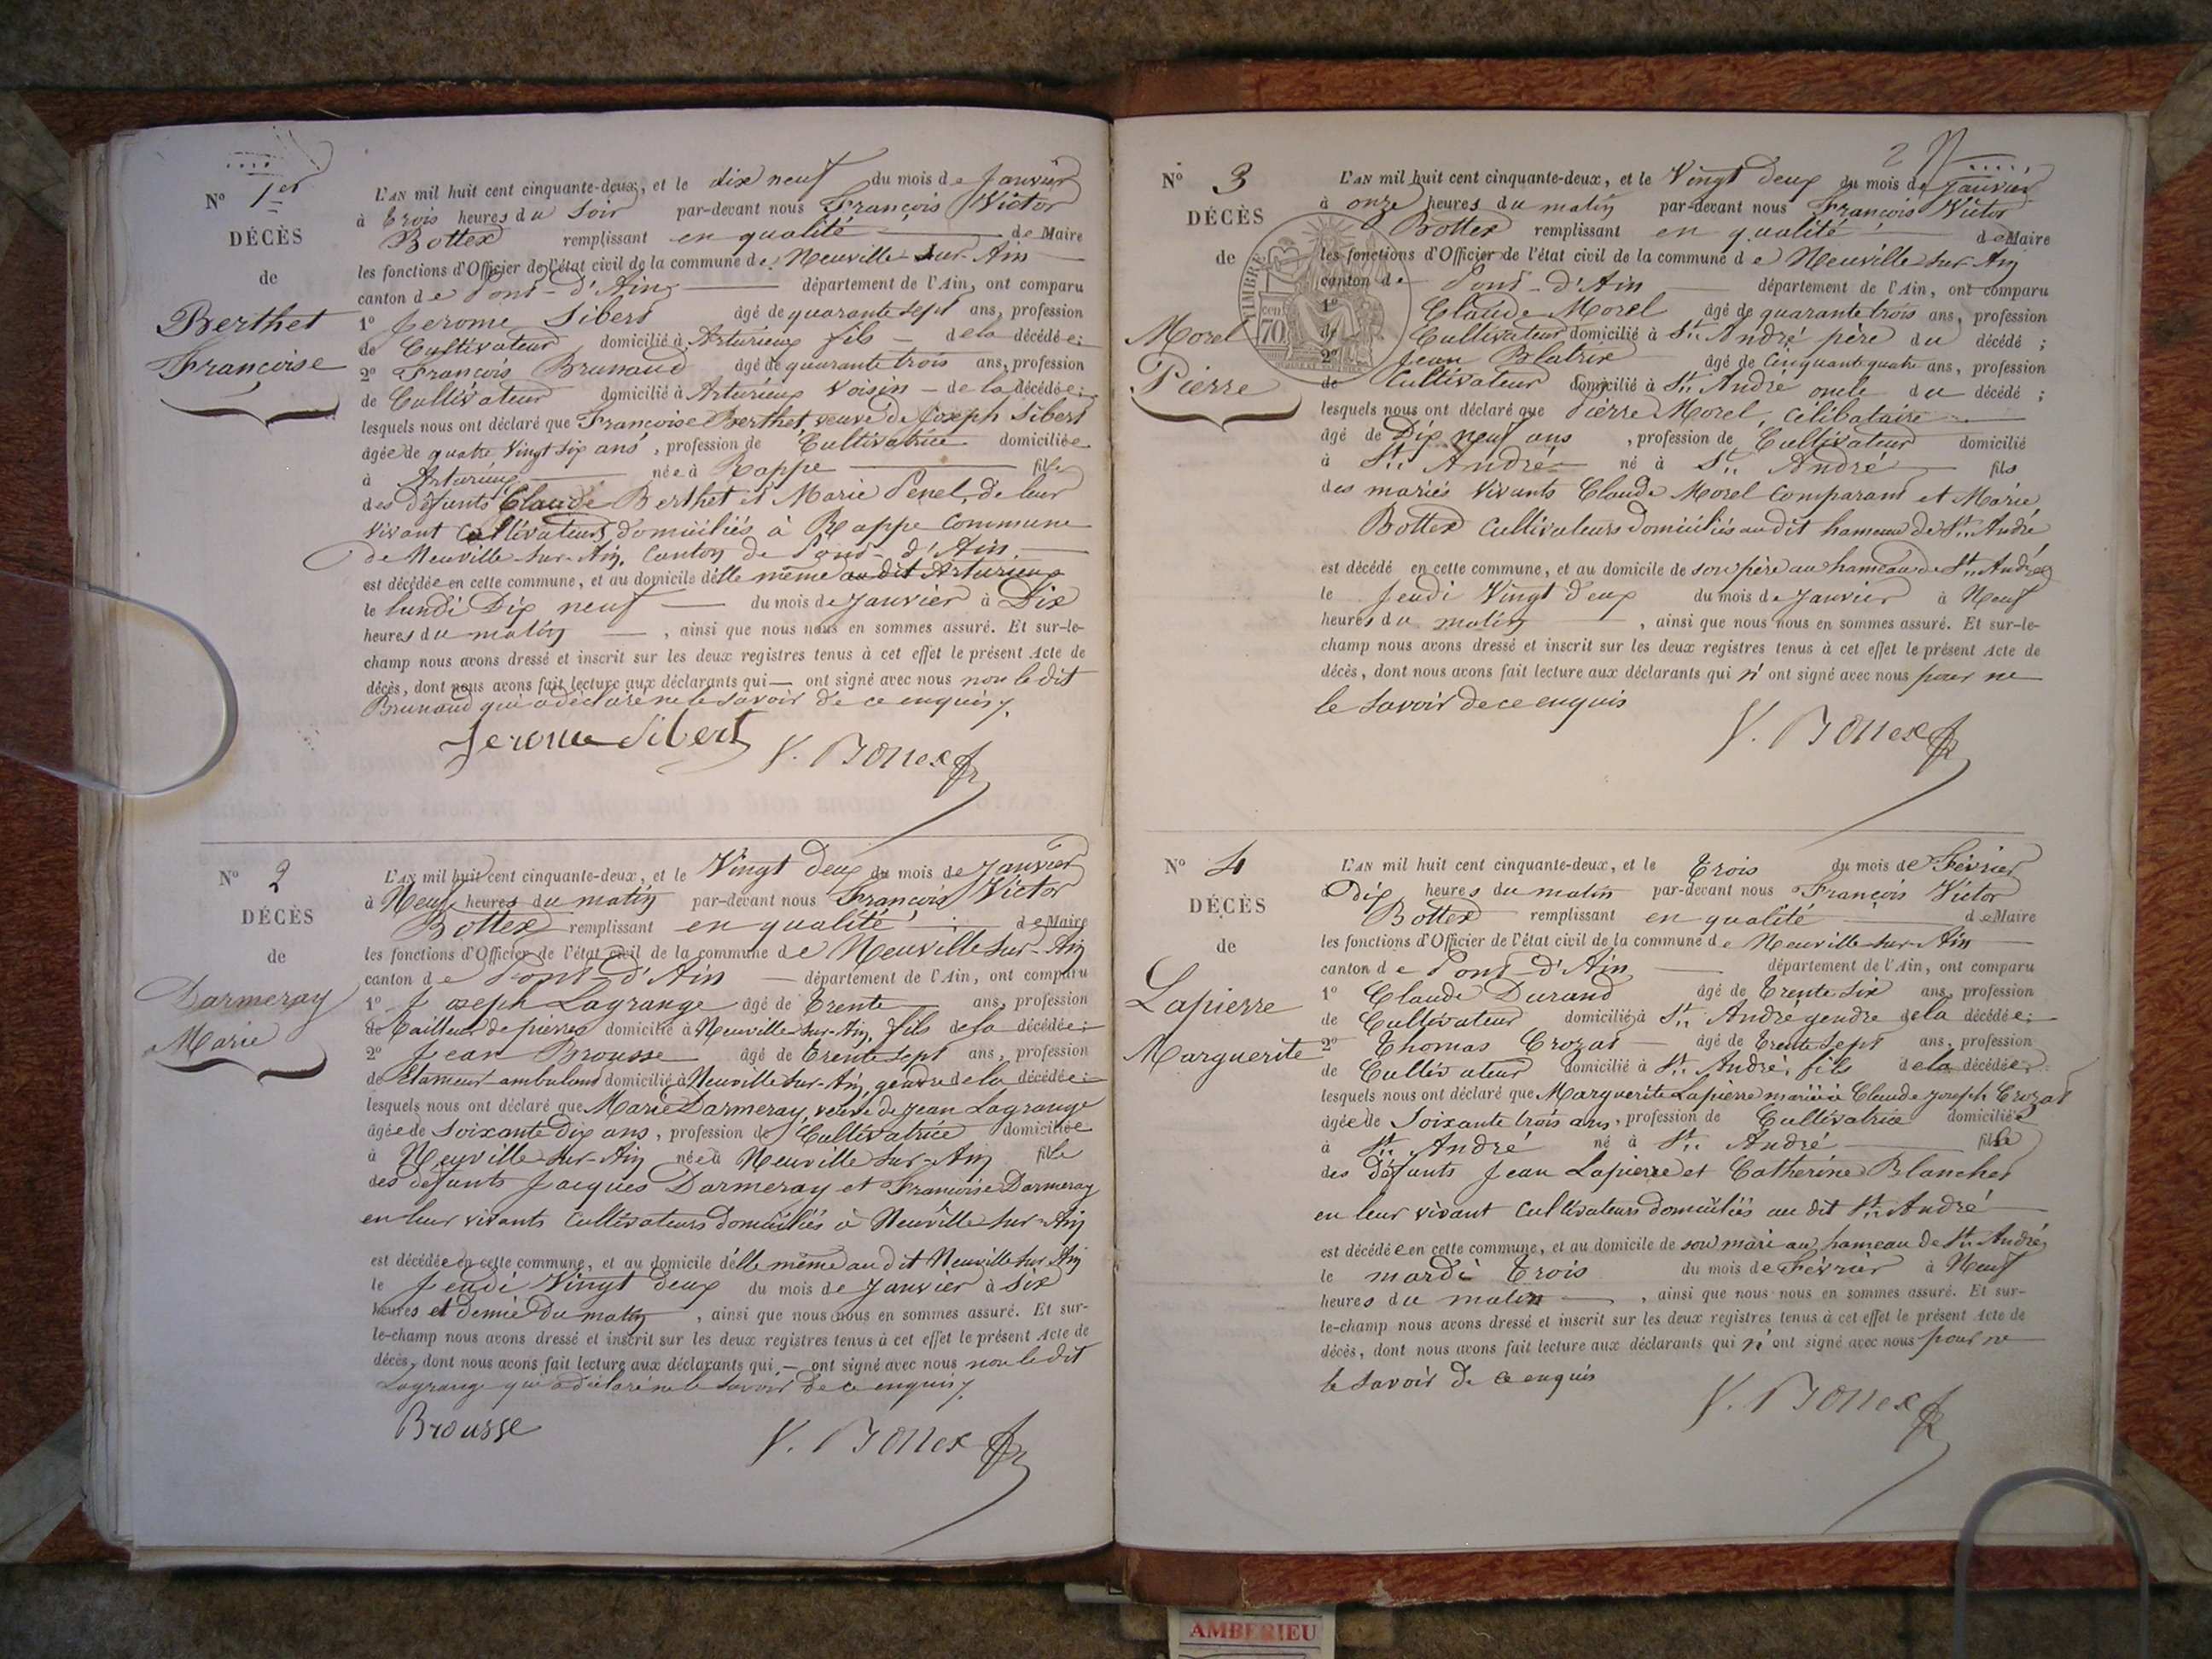 N° 1er
DÉCÈS
de
Berthet
Françoise
L'AN mil huit cent cinquante-deux, et le dix neuf du mois de Janvier
à trois heures du Soir par-devant nous François Victor
Bottex remplissant en qualité de Maire
les fonctions d'Officier de l'état civil de la commune de Neuville sur-Ain
canton de Pont-d'Ain département de l'Ain, ont comparu
1° Jerome Sibert âgé de quarante sept ans, profession
de Cultivateur domicilié à Arturieux fils de la décédée;
2° François Brunaud âgé de quarante trois ans, profession
de Cultivateur domicilié à Arturieux voisin de la décédée;
lesquels nous ont déclaré que Françoise Berthet veuve de Joseph Sibert
âgée de quatre vingt six ans, profession de Cultivatrice domiciliée
à Arturieux née à Rappe fille
des défunts Claude Berthet et Marie Penel, de leur
vivant cultivateurs domiciliés à Rappe Commune
de Neuville-sur-Ain, Canton de Pont-d'Ain.
est décédée en cette commune, et au domicile d'elle même au dit Arturieux
le lundi Dix neuf du mois de Janvier à Dix
heures du matin, ainsi que nous nous en sommes assuré. Et sur-le-
champ nous avons dressé et inscrit sur les deux registres tenus à cet effet le présent Acte de
décès, dont nous avons fait lecture aux déclarants qui — ont signé avec nous non le dit
Brunaud qui a déclaré ne le savoir de ce enquis
Jerome Sibert V. Bottex
N° 2
DÉCÈS
de
Darmeray
Marie
L'AN mil huit cent cinquante-deux, et le Vingt deux du mois de Janvier
à Neuf heures du matin par-devant nous François Victor
Bottex remplissant en qualité de Maire
les fonctions d'Officier de l'état civil de la commune de Neuville sur-Ain
canton de Pont-d'Ain département de l'Ain, ont comparu
1° Joseph Lagrange âgé de trente ans, profession
de tailleur de pierres domicilié à Neuville-sur-Ain, fils de la décédée;
2° Jean Brousse âgé de trente sept ans, profession
de Etameur ambulant domicilié à Neuville sur-Ain, gendre de la décédée;
lesquels nous ont déclaré que Marie Darmeray, veuve de Jean Lagrange
âgée de soixante dix ans, profession de Cultivatrice domiciliée
à Neuville-sur-Ain née à Neuville sur-Ain fille
des défunts Jacques Darmeray et Françoise Darmeray
en leur vivants Cultivateurs domiciliés à Neuville sur-Ain
est décédée en cette commune, et au domicile d'elle même au dit Neuville sur Ain
le Jeudi Vingt deux du mois de Janvier à six
heures et demie du matin, ainsi que nous nous en sommes assuré. Et sur-
le-champ nous avons dressé et inscrit sur les deux registres tenus à cet effet le présent Acte de
décès, dont nous avons fait lecture aux déclarants qui — ont signé avec nous non le dit
Lagrange qui a déclaré ne le savoir de ce enquis
Brousse V. Bottex
2
N° 3
DÉCÈS
de
Morel
Pierre
TIMBRE
70
L'AN mil huit cent cinquante-deux, et le Vingt deux du mois de Janvier
à onze heures du matin par-devant nous François Victor
Bottex remplissant en qualité de Maire
les fonctions d'Officier de l'état civil de la commune de Neuville sur Ain
canton de Pont-d'Ain département de l'Ain, ont comparu
1° Claude Morel âgé de quarante trois ans, profession
de Cultivateur domicilié à St. André père du décédé;
2° Jean Blatrix âgé de Cinquante quatre ans, profession
de Cultivateur domicilié à St. André oncle du décédé;
lesquels nous ont déclaré que Pierre Morel, Célibataire
âgé de Dix neuf ans, profession de Cultivateur domicilié
à St. André né à St. André fils
des mariés vivants Claude Morel Comparant et Marie
Bottex Cultivateurs domiciliés au dit hameau de St. André
est décédé en cette commune, et au domicile de son père au hameau de St. André
le Jeudi Vingt deux du mois de Janvier à Neuf
heures du matin, ainsi que nous nous en sommes assuré. Et sur-le-
champ nous avons dressé et inscrit sur les deux registres tenus à cet effet le présent Acte de
décès, dont nous avons fait lecture aux déclarants qui n'ont signé avec nous pour ne
le savoir de ce enquis
V. Bottex
N° 4
DÉCÈS
de
Lapierre
Marguerite
L'AN mil huit cent cinquante-deux, et le trois du mois de Février
à Dix heures du matin par-devant nous François Victor
Bottex remplissant en qualité de Maire
les fonctions d'Officier de l'état civil de la commune de Neuville-sur-Ain
canton de Pont-d'Ain département de l'Ain, ont comparu
1° Claude Durand âgé de trente six ans, profession
de Cultivateur domicilié à St. André gendre de la décédée;
2° Thomas Crozat âgé de trente sept ans, profession
de Cultivateur domicilié à St. André, fils de la décédée;
lesquels nous ont déclaré que Marguerite Lapierre mariée à Claude Joseph Crozat
âgée de Soixante trois ans, profession de Cultivatrice domiciliée
à St. André né à St. André fille
des défunts Jean Lapierre et Catherine Blanchet
en leur vivant Cultivateurs domiciliés au dit St. André
est décédée en cette commune, et au domicile de son mari au hameau de St. André
le mardi trois du mois de Février à Neuf
heures du matin, ainsi que nous nous en sommes assuré. Et sur-
le-champ nous avons dressé et inscrit sur les deux registres tenus à cet effet le présent Acte de
décès, dont nous avons fait lecture aux déclarants qui n'ont signé avec nous pour ne
le savoir de ce enquis
V. Bottex
AMBERIEU